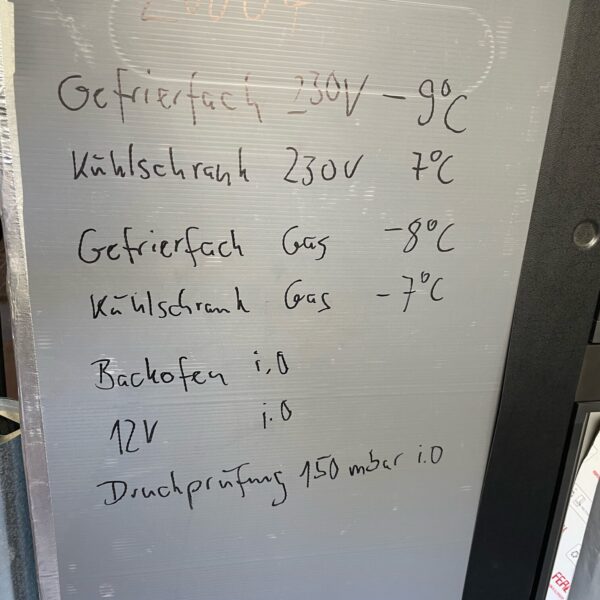 Gefrierfach 230V -9°C
Kühlschrank 230V 7°C
Gefrierfach Gas -8°C
Kühlschrank Gas -7°C
Backofen i.O
12V i.O
Druckprüfung 150 mbar i.O